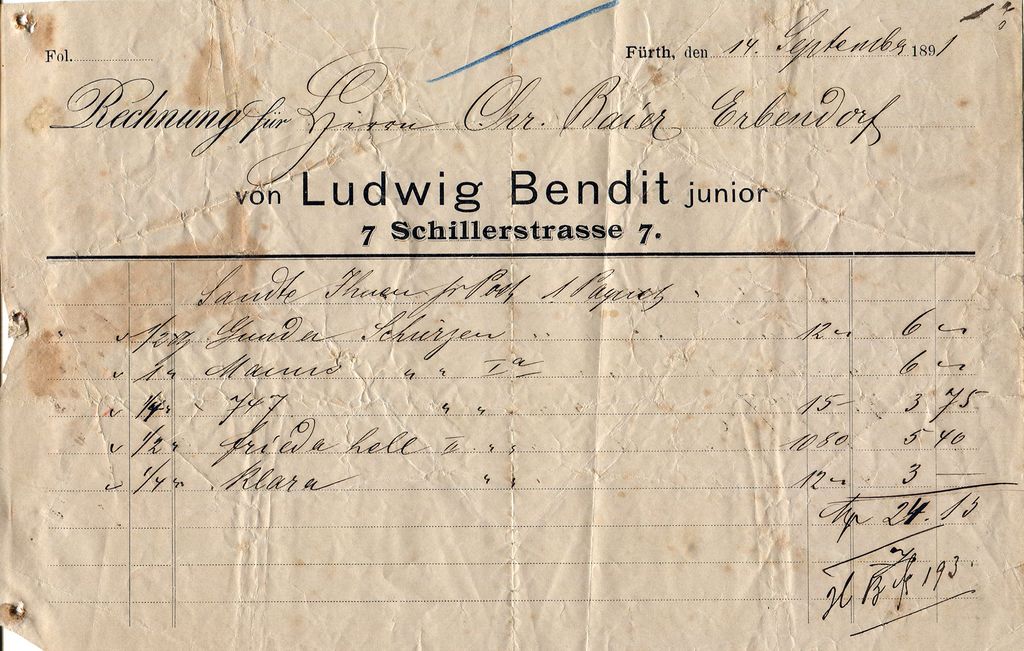 Fol.
Fürth, den 14. September 1891
Rechnung für Herrn Chr. Baier Erbendorf
von Ludwig Bendit junior
7 Schillerstrasse 7.
Sandte Ihnen pr Post 1 Paquet
1/2 Schürzen 12 6
" " Ia 6
1/4 " 747 " " 15 3 75
1/2 " frieda hell II " " 10 80 5 40
1/4 " Klara " " 12 3 —
24. 15
193.